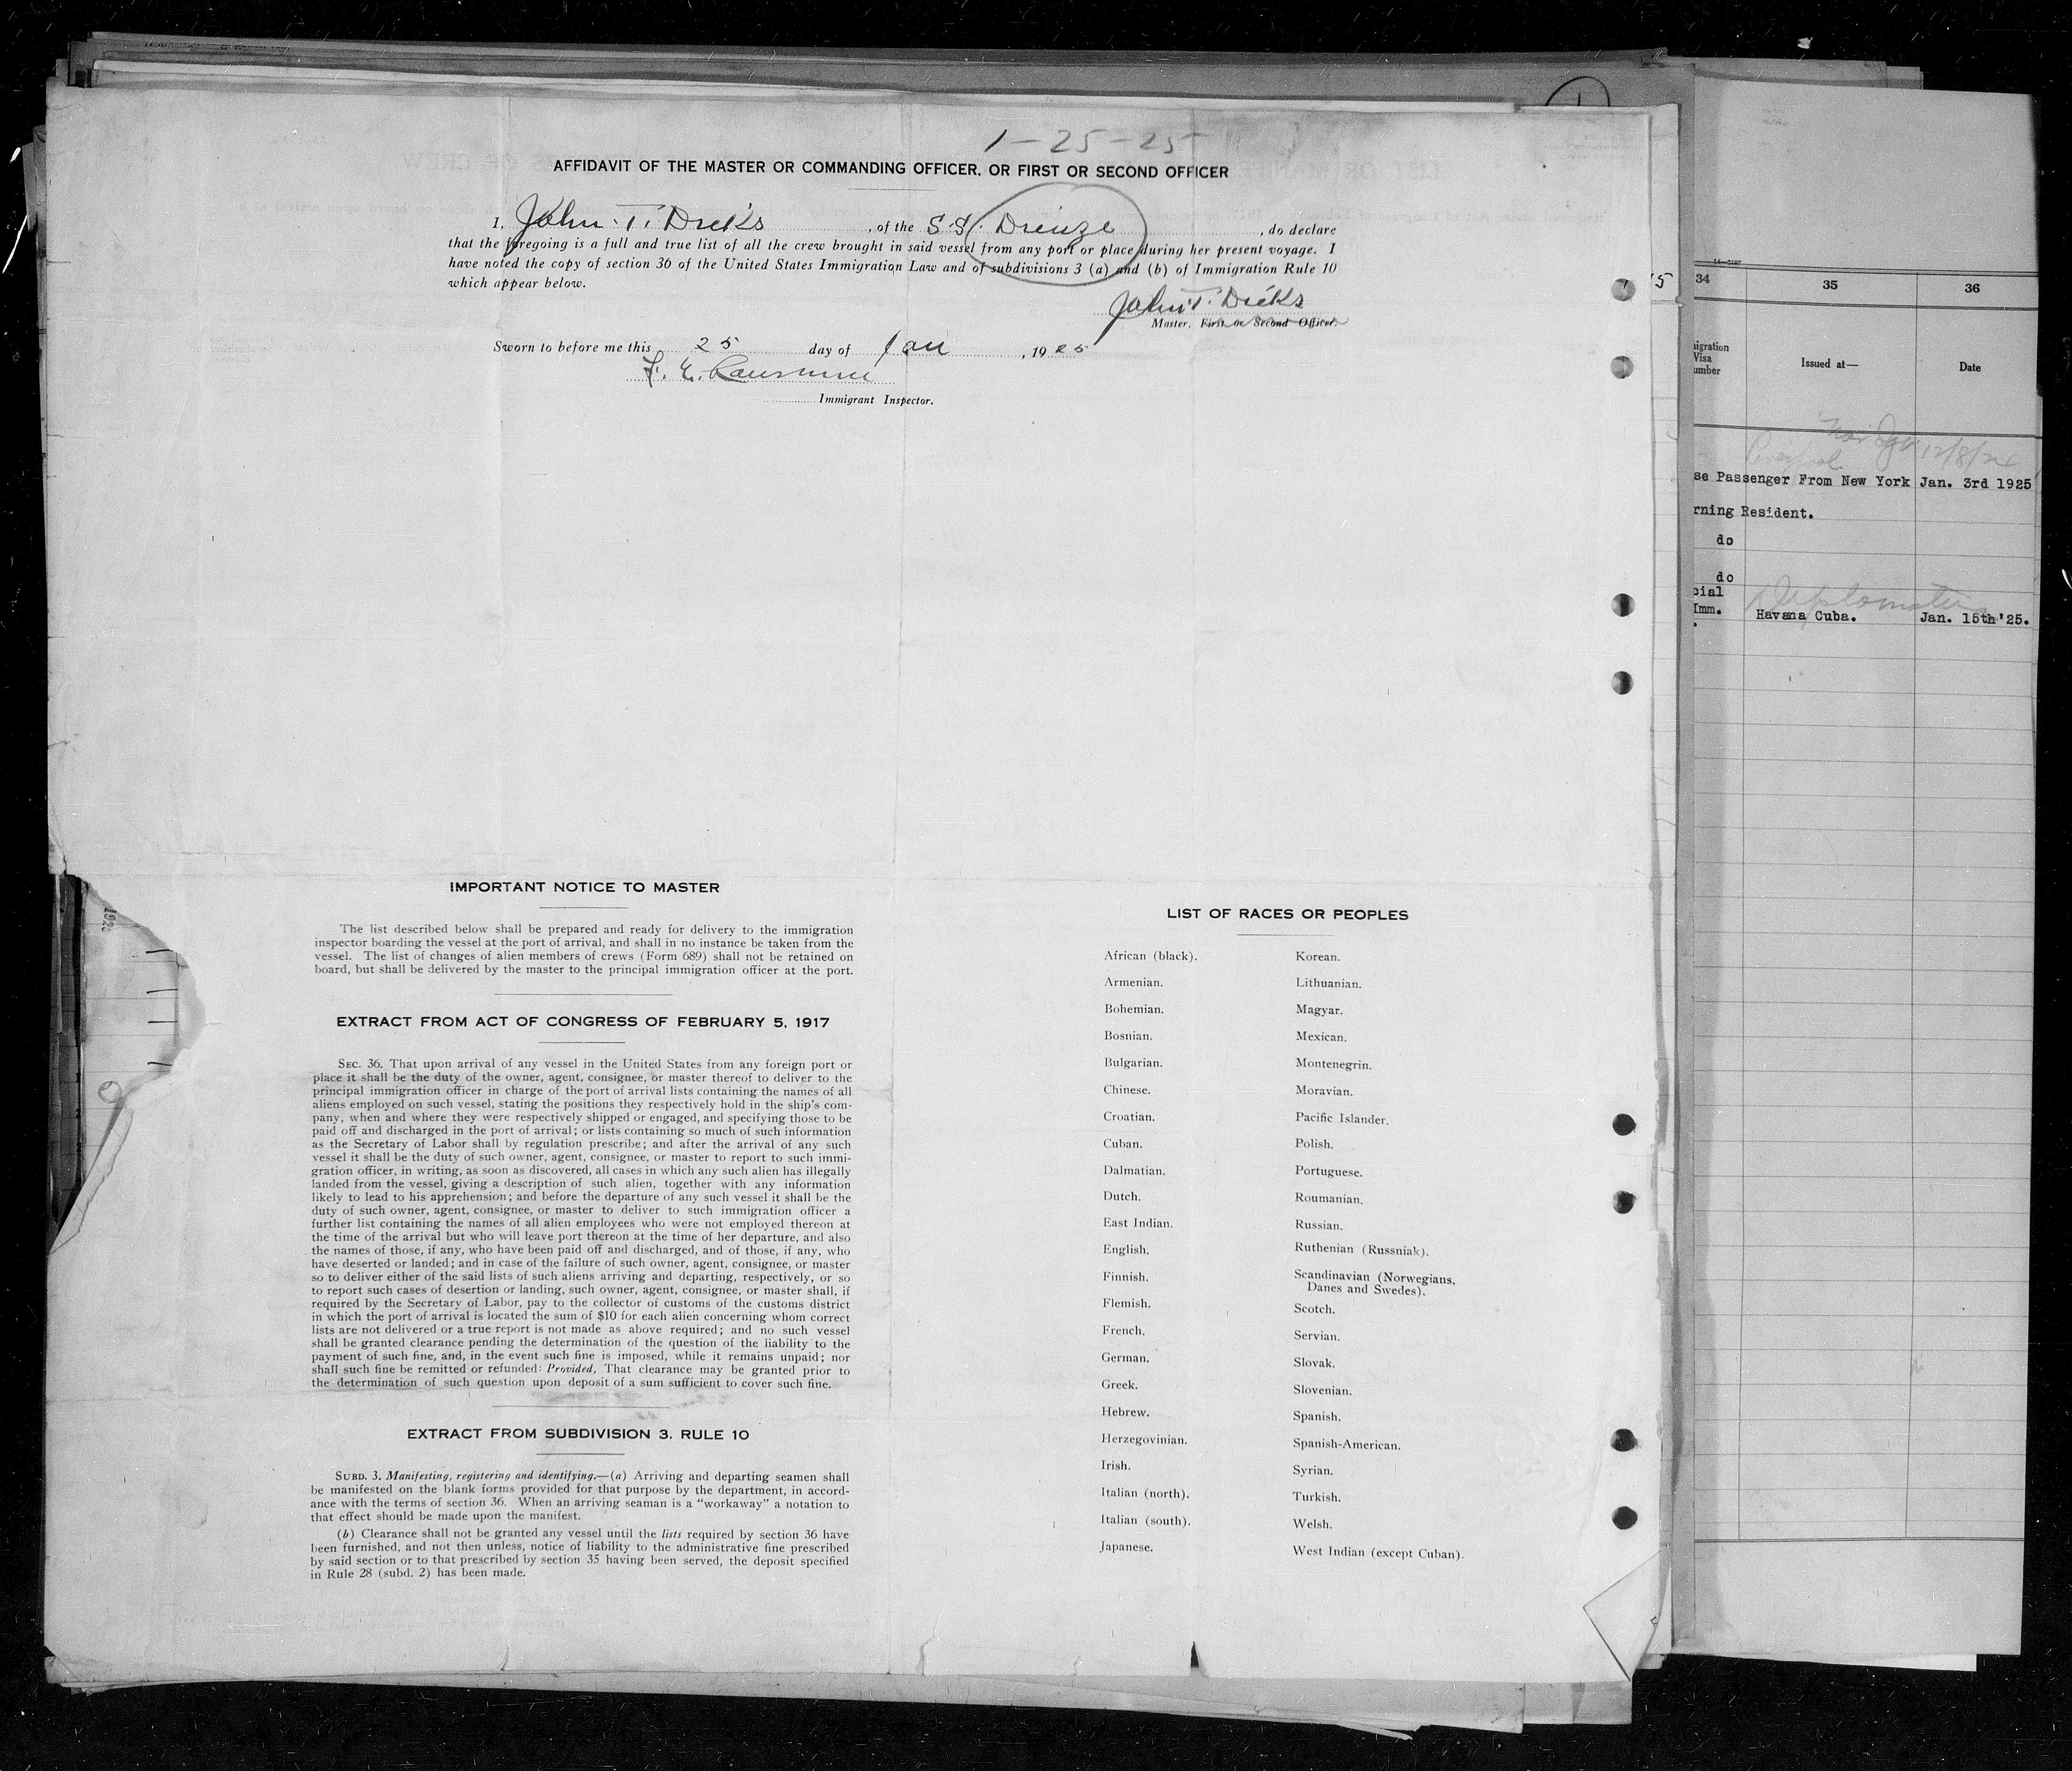 1-25-25
AFFIDAVIT OF THE MASTER OR COMMANDING OFFICER, OR FIRST OR SECOND OFFICER
I, John T. Dicks, of the S.S. Drieuze, do declare
that the foregoing is a full and true list of all the crew brought in said vessel from any port or place during her present voyage. I
have noted the copy of section 36 of the United States Immigration Law and of subdivisions 3 (a) and (b) of Immigration Rule 10
which appear below.
John T. Dicks
Master, First or Second Officer.
Sworn to before me this 25 day of Jan, 1925
Immigrant Inspector.
IMPORTANT NOTICE TO MASTER
The list described below shall be prepared and ready for delivery to the immigration
inspector boarding the vessel at the port of arrival, and shall in no instance be taken from the
vessel. The list of changes of alien members of crews (Form 689) shall not be retained on
board, but shall be delivered by the master to the principal immigration officer at the port.
EXTRACT FROM ACT OF CONGRESS OF FEBRUARY 5, 1917
SEC. 36. That upon arrival of any vessel in the United States from any foreign port or
place it shall be the duty of the owner, agent, consignee, or master thereof to deliver to the
principal immigration officer in charge of the port of arrival lists containing the names of all
aliens employed on such vessel, stating the positions they respectively hold in the ship's com-
pany, when and where they were respectively shipped or engaged, and specifying those to be
paid off and discharged in the port of arrival; or lists containing so much of such information
as the Secretary of Labor shall by regulation prescribe; and after the arrival of any such
vessel it shall be the duty of such owner, agent, consignee, or master to report to such immi-
gration officer, in writing, as soon as discovered, all cases in which any such alien has illegally
landed from the vessel, giving a description of such alien, together with any information
likely to lead to his apprehension; and before the departure of any such vessel it shall be the
duty of such owner, agent, consignee, or master to deliver to such immigration officer a
further list containing the names of all alien employees who were not employed thereon at
the time of the arrival but who will leave port thereon at the time of her departure, and also
the names of those, if any, who have been paid off and discharged, and of those, if any, who
have deserted or landed; and in case of the failure of such owner, agent, consignee, or master
so to deliver either of the said lists of such aliens arriving and departing, respectively, or so
to report such cases of desertion or landing, such owner, agent, consignee, or master shall, if
required by the Secretary of Labor, pay to the collector of customs of the customs district
in which the port of arrival is located the sum of $10 for each alien concerning whom correct
lists are not delivered or a true report is not made as above required; and no such vessel
shall be granted clearance pending the determination of the question of the liability to the
payment of such fine, and, in the event such fine is imposed, while it remains unpaid; nor
shall such fine be remitted or refunded: Provided, That clearance may be granted prior to
the determination of such question upon deposit of a sum sufficient to cover such fine.
EXTRACT FROM SUBDIVISION 3. RULE 10
SUBD. 3. Manifesting, registering and identifying.—(a) Arriving and departing seamen shall
be manifested on the blank forms provided for that purpose by the department, in accord-
ance with the terms of section 36. When an arriving seaman is a "workaway" a notation to
that effect should be made upon the manifest.
(b) Clearance shall not be granted any vessel until the lists required by section 36 have
been furnished, and not then unless, notice of liability to the administrative fine prescribed
by said section or to that prescribed by section 35 having been served, the deposit specified
in Rule 28 (subd. 2) has been made.
LIST OF RACES OR PEOPLES
African (black).
Armenian.
Bohemian.
Bosnian.
Bulgarian.
Chinese.
Croatian.
Cuban.
Dalmatian.
Dutch.
East Indian.
English.
Finnish.
Flemish.
French.
German.
Greek.
Hebrew.
Herzegovinian.
Irish.
Italian (north).
Italian (south).
Japanese.
Korean.
Lithuanian.
Magyar.
Mexican.
Montenegrin.
Moravian.
Pacific Islander.
Polish.
Portuguese.
Roumanian.
Russian.
Ruthenian (Russniak).
Scandinavian (Norwegians,
Danes and Swedes).
Scotch.
Servian.
Slovak.
Slovenian.
Spanish.
Spanish-American.
Syrian.
Turkish.
Welsh.
West Indian (except Cuban).
34 35 36
igration
Visa
umber
Issued at—
Date
12/8/24
se Passenger From New York Jan. 3rd 1925
rning Resident.
do
do
cial
Imm.
Diplomatic
Havana Cuba. Jan. 15th '25.